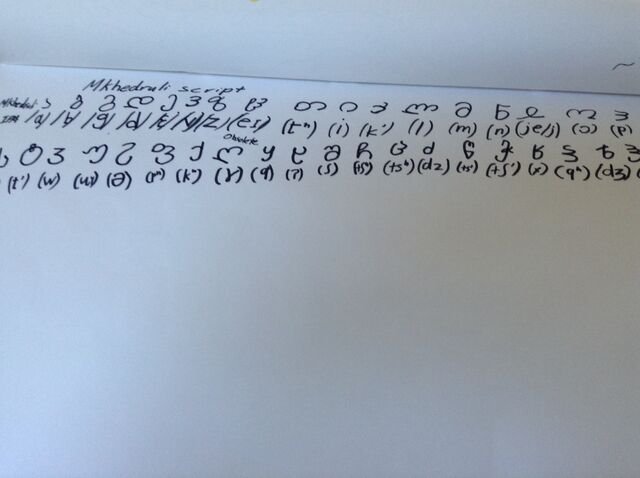 Mkhedruli script
Mkhedruli ა ბ გ დ ე ვ ზ ჱ თ ი კ ლ მ ნ ჲ ო პ
IPA /a/ /g/ /d/ /v/ /z/ (tʰ) (i) (k') (l) (m) (n) (je/j) (ɔ)
Obsolete
ტ ჳ უ ჷ ფ ქ ღ ყ ჸ შ ჩ ც ძ წ ჭ ხ ჴ ჯ
(t') (w) (u) (ə) (pʰ) (kʰ) (ɣ) (q) (ʔ) (ʃ) (tʃʰ) (tsʰ) (dz) (ts') (tʃ') (x) (qʰ) (dʒ)